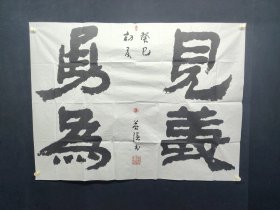 見義
勇為
癸巳
初夏